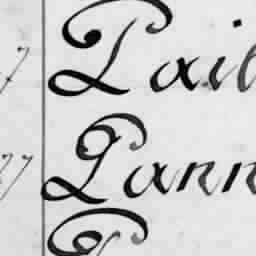 7 Pail
27 Pann